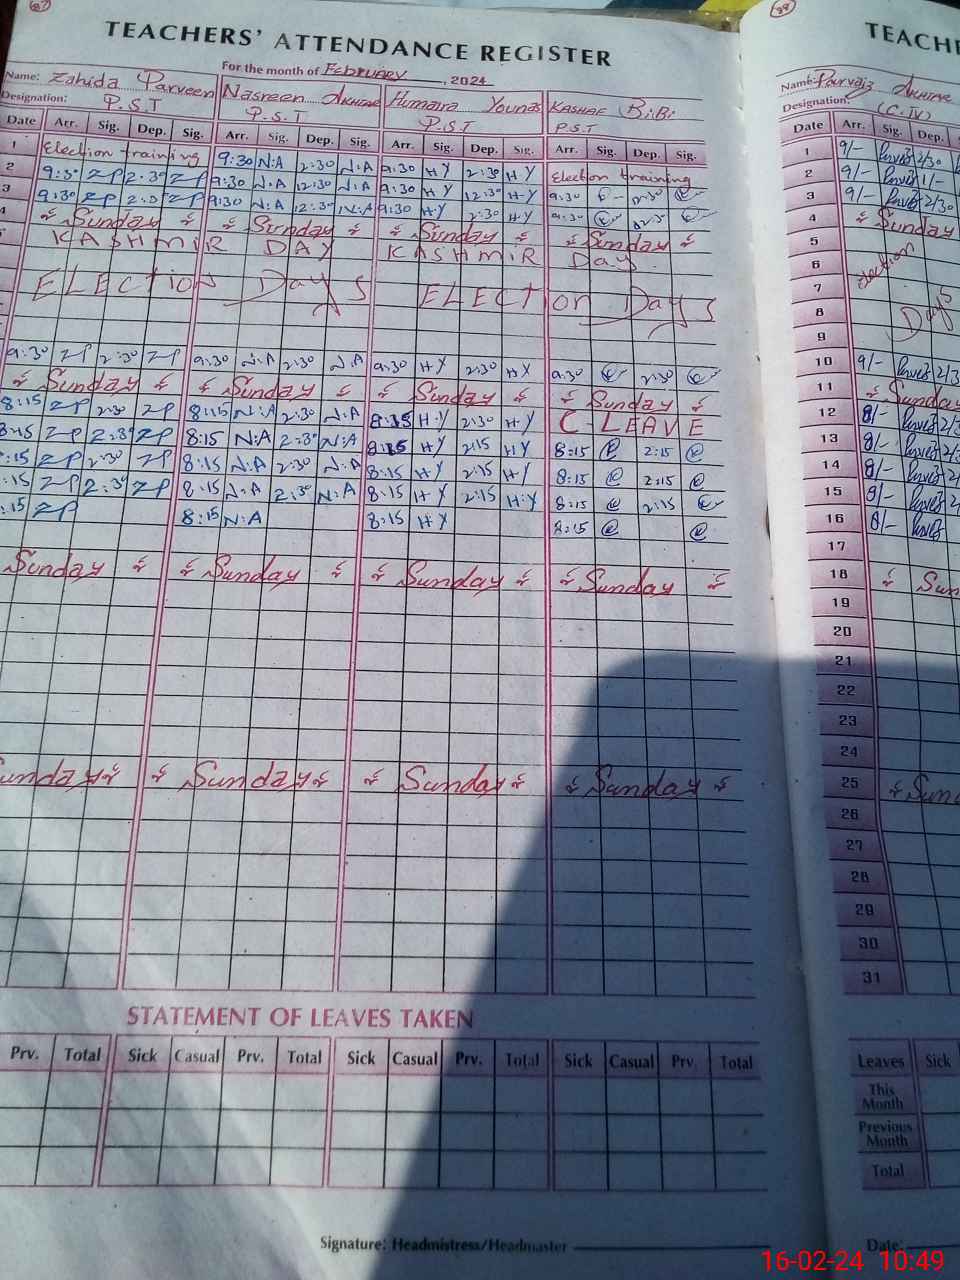 87
TEACHERS' ATTENDANCE REGISTER
For the month of February, 2024
Name: Zahida Parveen Nasreen Akhtar Humaira Younas Kashaf BiBi
Designation: P.S.T P.S.T P.S.T P.S.T
Date Arr. Sig. Dep. Sig. Arr. Sig. Dep. Sig. Arr. Sig. Dep. Sig. Arr. Sig. Dep. Sig.
1 Election training 9:30 N:A 2:30 N:A 9:30 H Y 2:30 H Y Election training
2 9:30 ZP 2:30 ZP 9:30 N:A 12:30 N:A 9:30 H Y 12:30 H Y 9:30 12:30
3 9:30 ZP 2:30 ZP 9:30 N:A 12:30 N:A 9:30 H Y 2:30 H Y 9:30 12:30
4 Sunday Sunday Sunday Sunday
KASHMIR DAY KASHMIR Day
ELECTion Days ELECTion Days
9:30 ZP 2:30 ZP 9:30 N:A 2:30 N:A 9:30 H Y 2:30 H Y 9:30 2:30
Sunday Sunday Sunday Sunday
8:15 ZP 2:30 ZP 8:15 N:A 2:30 N:A 8:15 H Y 2:30 H Y C LEAVE
8:15 ZP 2:30 ZP 8:15 N:A 2:30 N:A 8:15 H Y 2:15 H Y 8:15 2:15
:15 ZP 2:30 ZP 8:15 N:A 2:30 N:A 8:15 H Y 2:15 H Y 8:15 2:15
:15 ZP 2:30 ZP 8:15 N:A 2:30 N:A 8:15 H Y 2:15 H:Y 8:15 2:15
:15 ZP 8:15 N:A 8:15 H Y 8:15
Sunday Sunday Sunday Sunday
Sunday Sunday Sunday Sunday
STATEMENT OF LEAVES TAKEN
Prv. Total Sick Casual Prv. Total Sick Casual Prv. Total Sick Casual Prv. Total
Signature: Headmistress/Headmaster
88
TEACHE
Name: Parvaiz Akhtar
Designation: (C.IV)
Date Arr. Sig. Dep.
1 9/- 2/30
2 9/- 1/-
3 9/- 2/30
4 Sunday
5
6 Election
7
8 Days
9
10 9/- 2/3
11 Sunday
12 8/- 2/3
13 8/- 2/3
14 8/- 2/3
15 8/- 2/3
16 8/-
17
18 Sun
19
20
21
22
23
24
25 Sun
26
27
28
29
30
31
Leaves Sick
This Month
Previous Month
Total
Date:
16-02-24 10:49